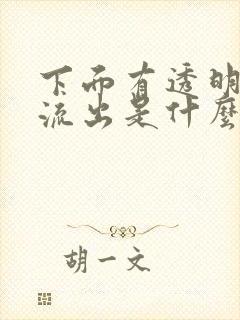 下面有透明
流出是什麼
胡一文